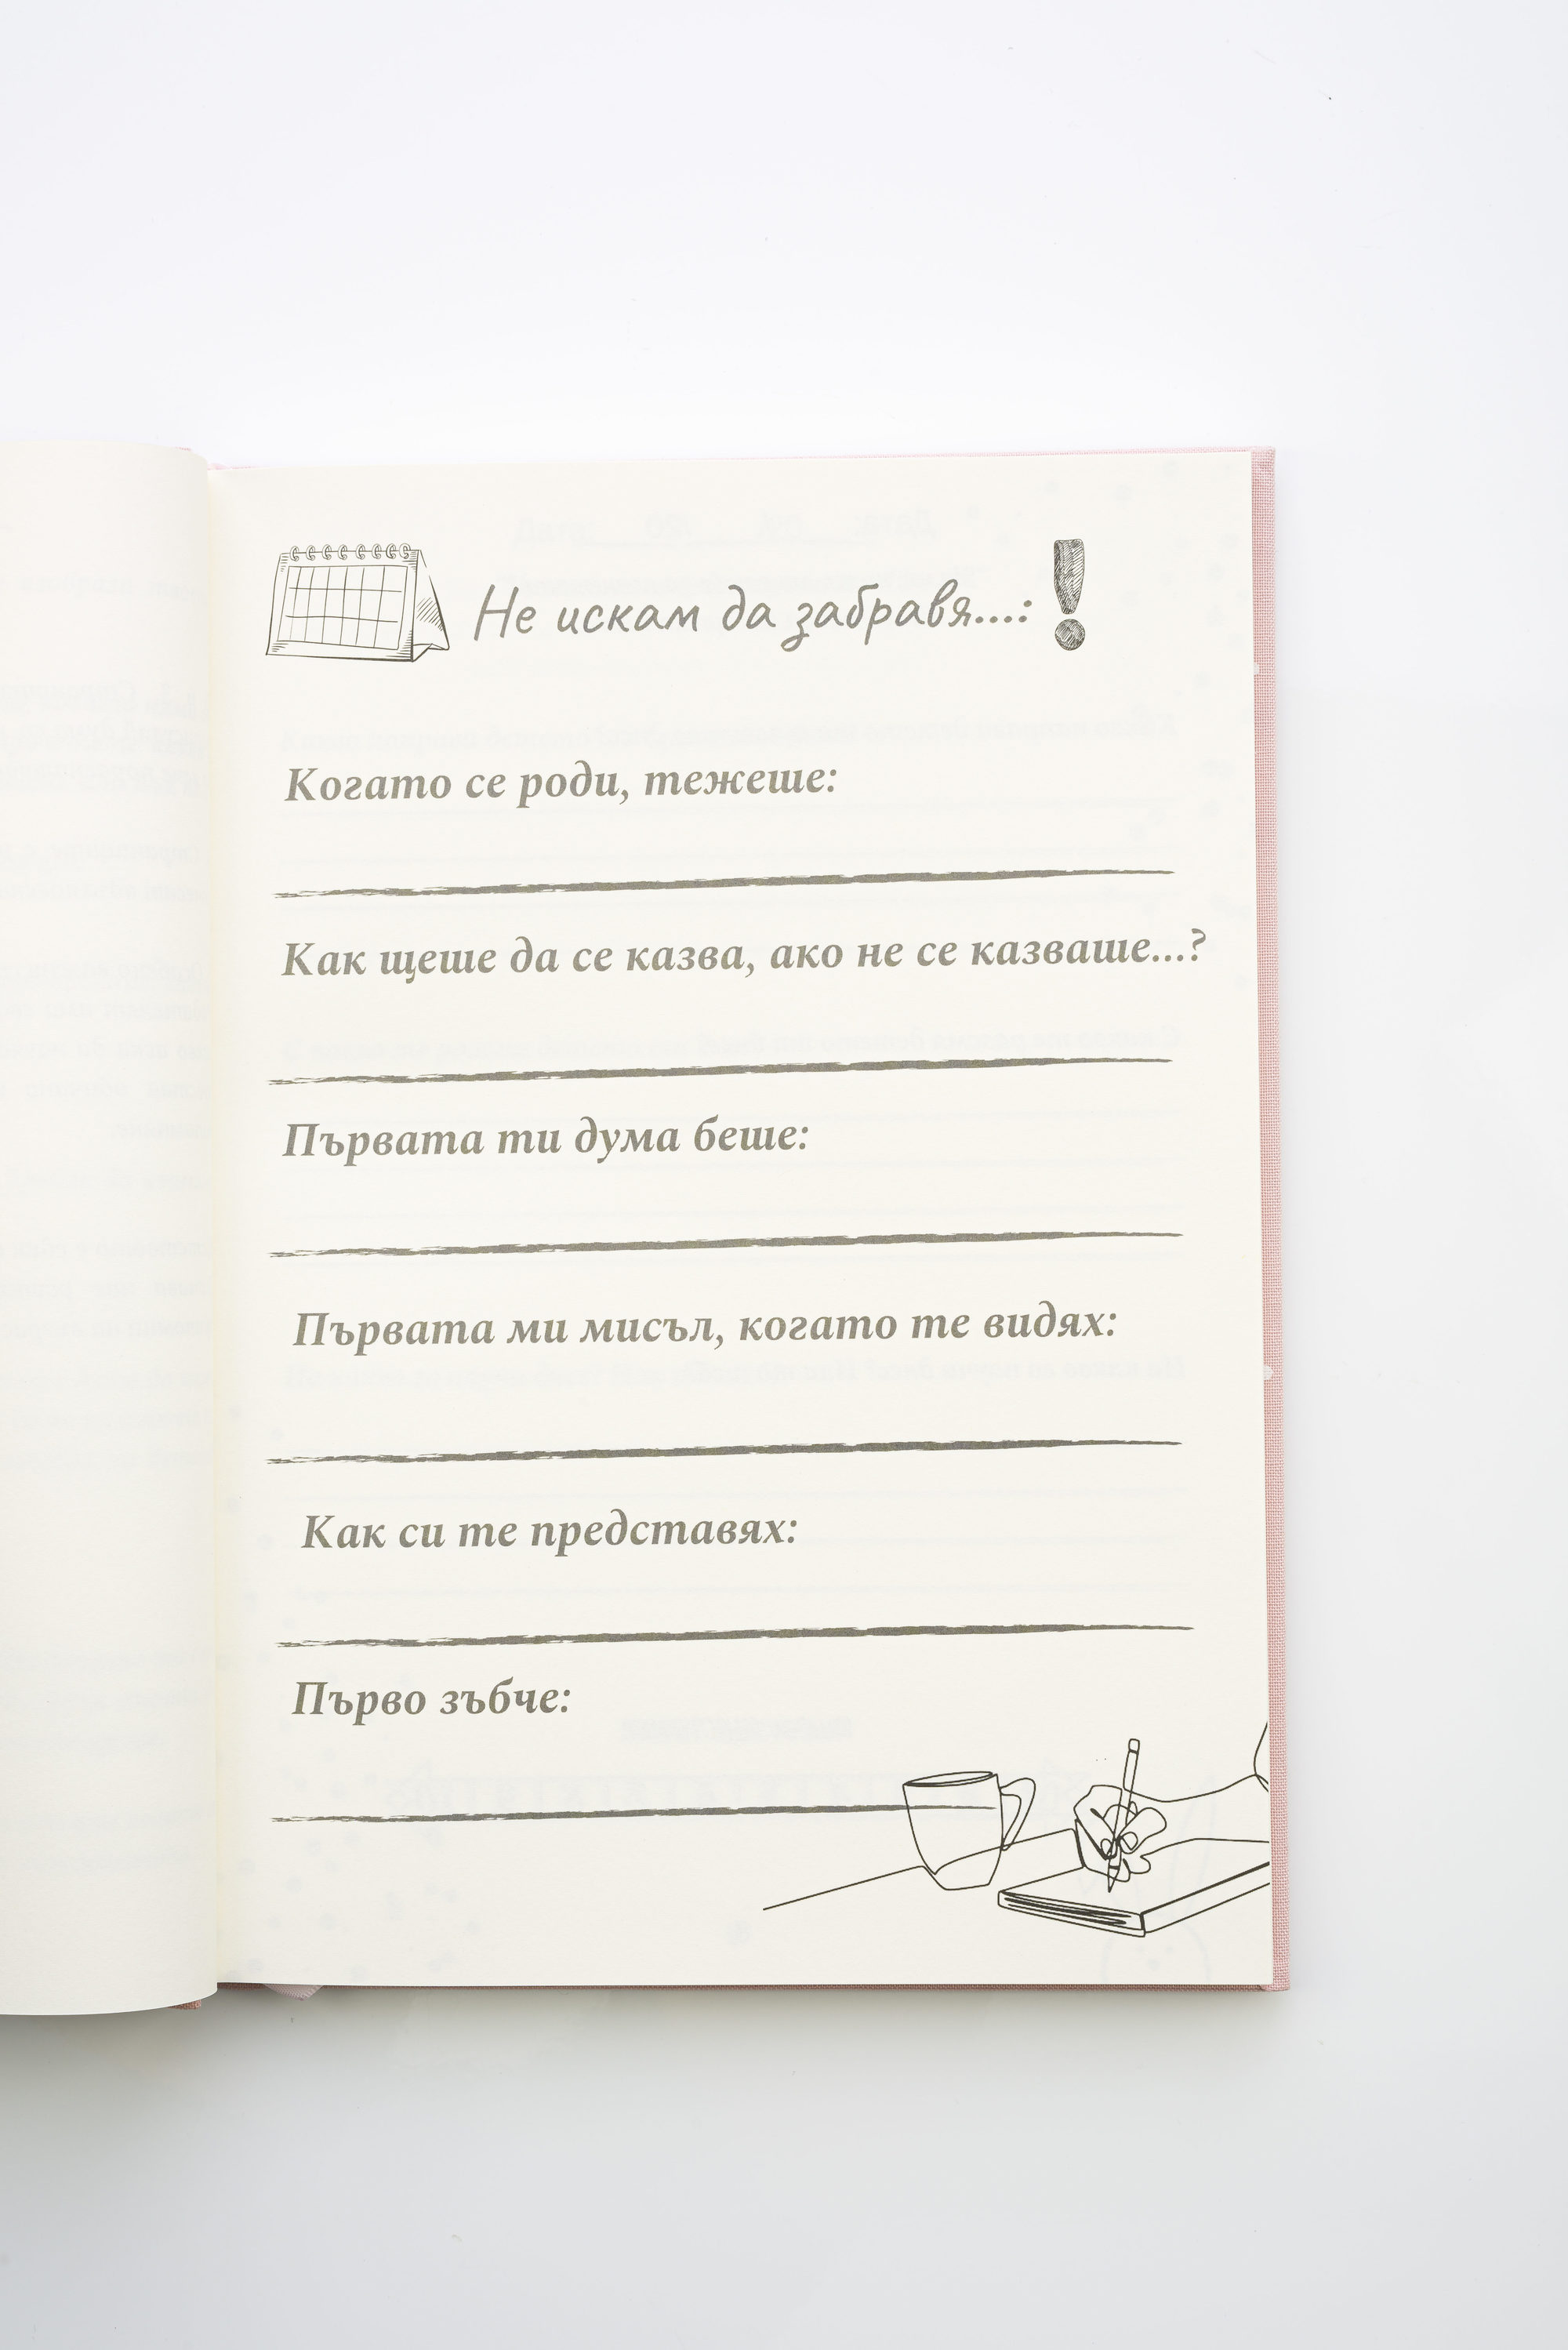 Не искам да забравя...:
Когато се роди, тежеше:
Как щеше да се казва, ако не се казваше...?
Първата ти дума беше:
Първата ми мисъл, когато те видях:
Как си те представях:
Първо зъбче: